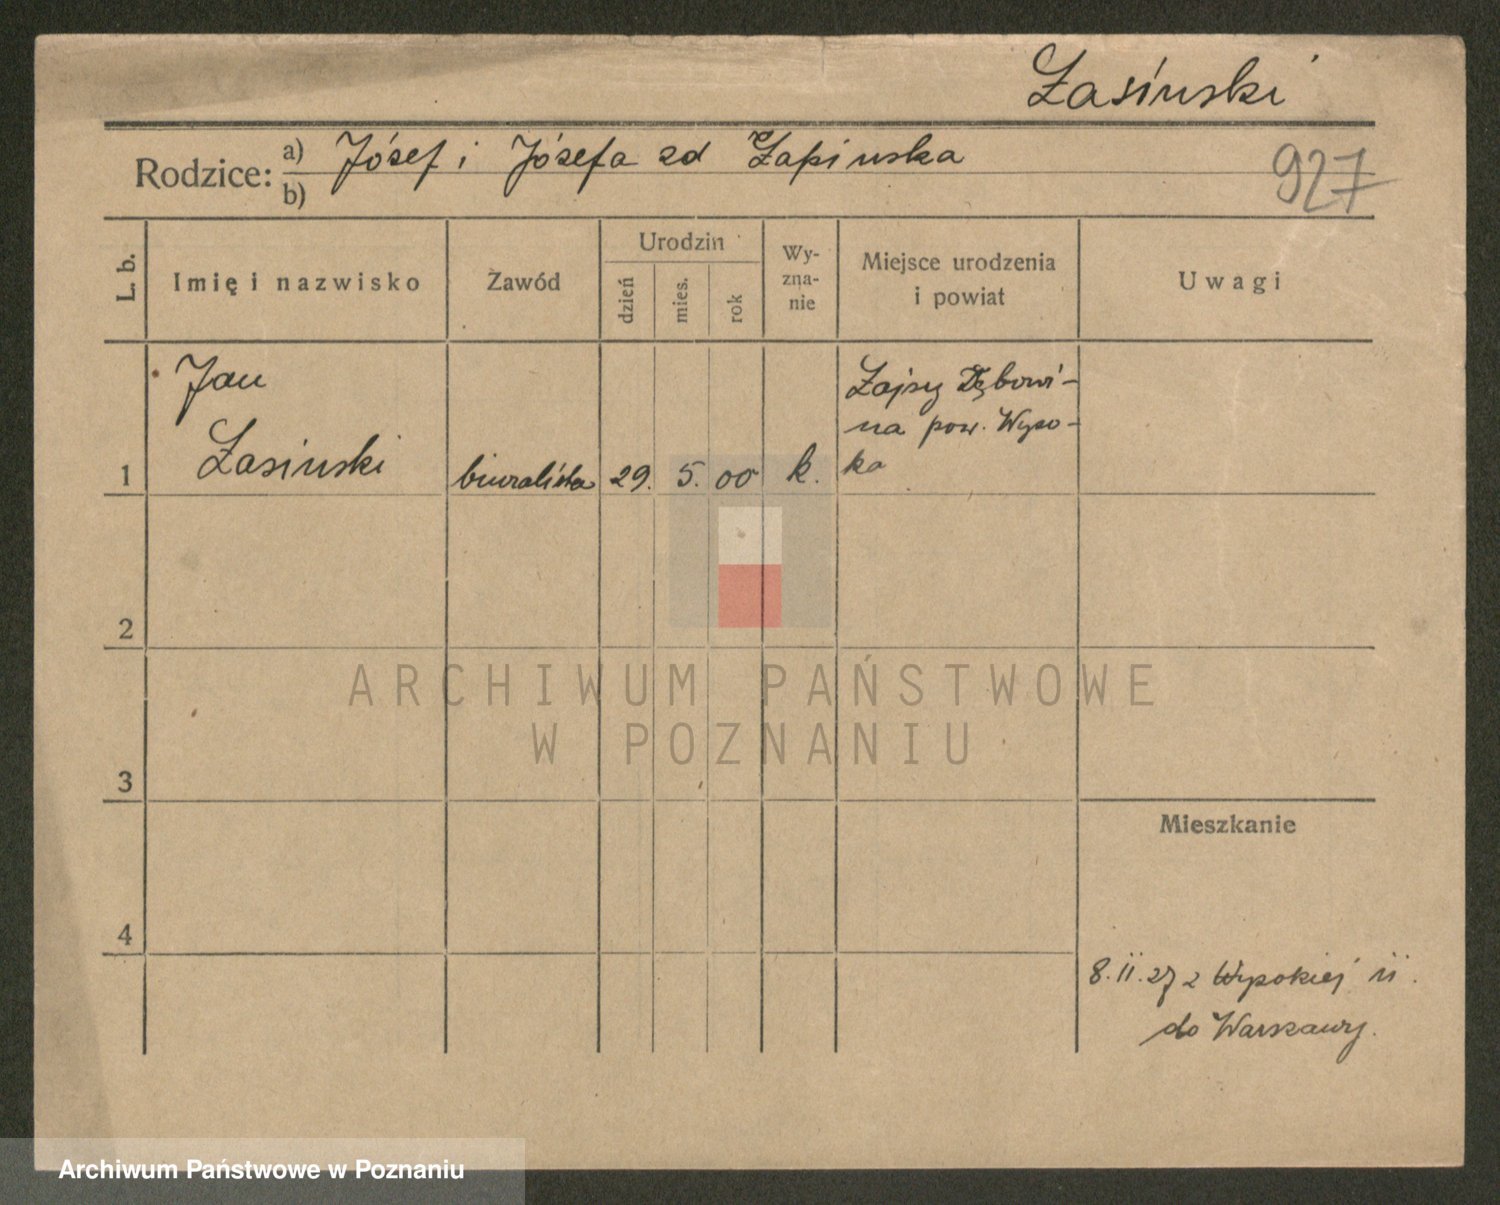 Łasiński
Rodzice: a) Józef i Józefa zd Łapinska
b)
927
L. b.
Imię i nazwisko
Zawód
Urodzin
dzień
mies.
rok
Wy-
zna-
nie
Miejsce urodzenia
i powiat
Uwagi
Jan
Łasinski
1
biuralista
29. 5. 00
k.
Dębowi-
na pow. Wyso-
ka
2
3
4
Mieszkanie
8.II.27 z Wysokiej
do Warszawy.
ARCHIWUM PAŃSTWOWE
W POZNANIU
Archiwum Państwowe w Poznaniu